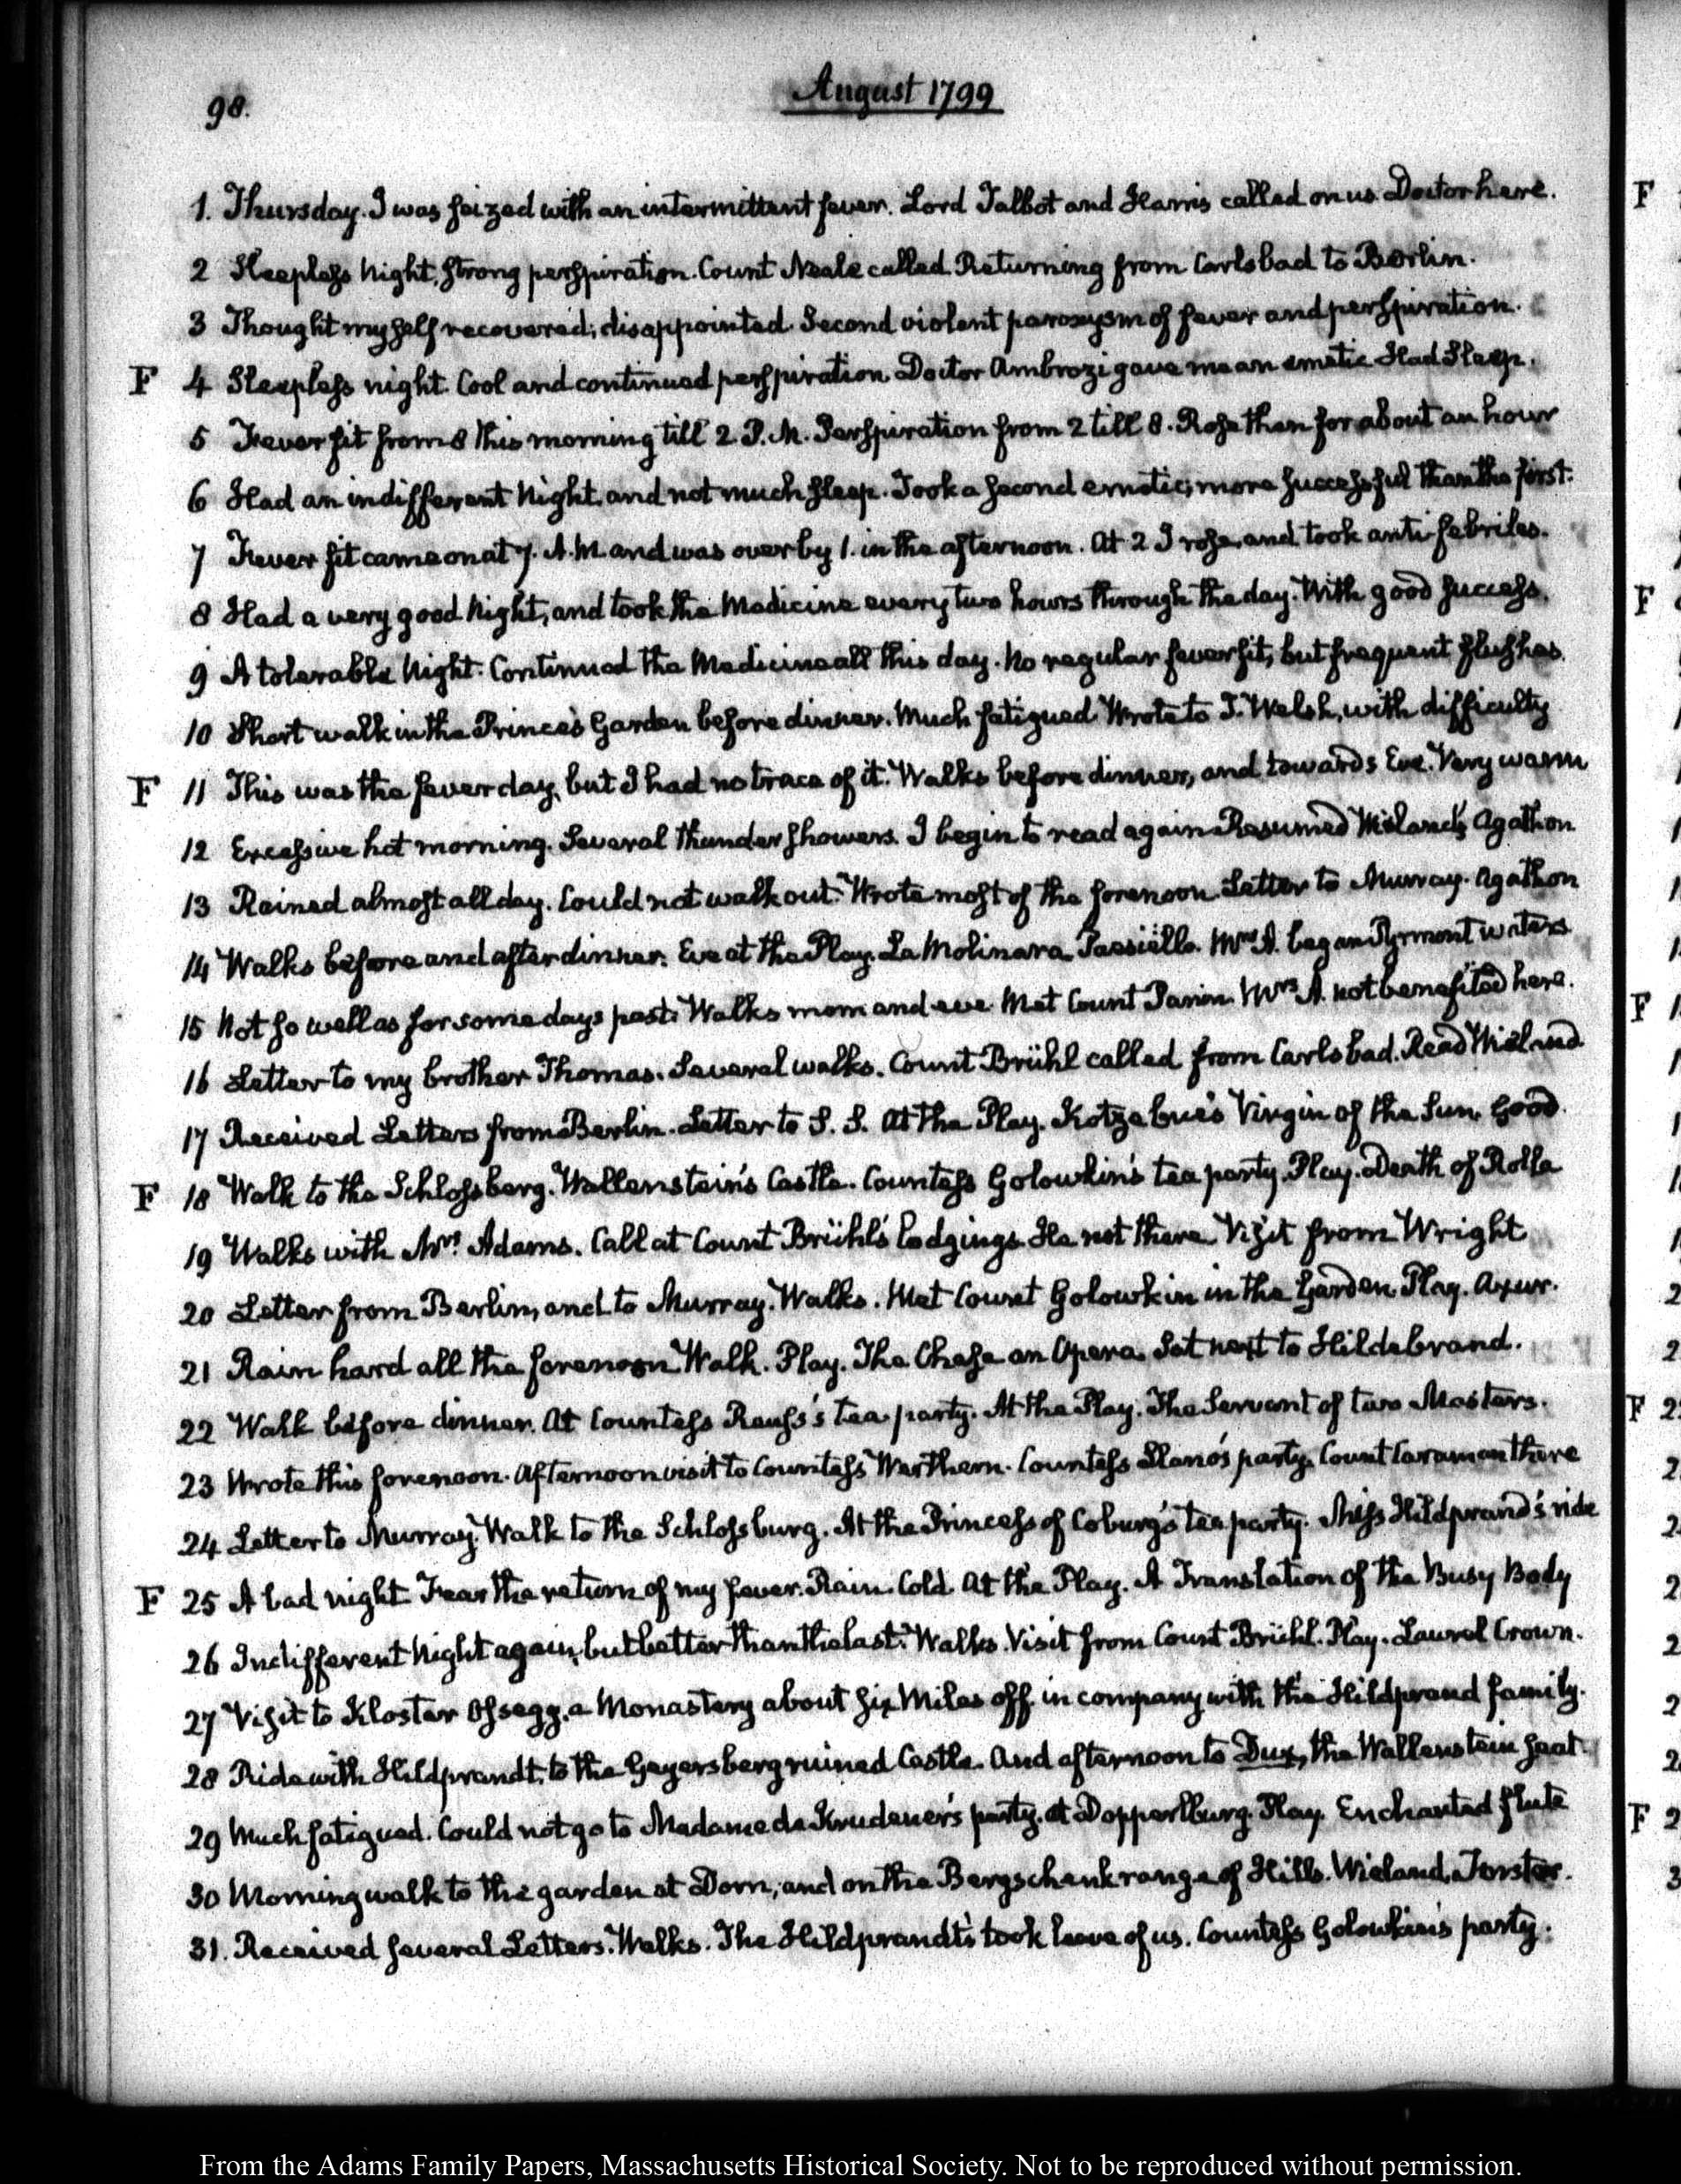 98.
August 1799
1. Thursday. I was seized with an intermittent fever. Lord Talbot and Harris called on us. Doctor here.
2 Sleepless Night, strong perspiration. Count Neale called. Returning from Carlsbad to Berlin.
3 Thought myself recovered; disappointed. Second violent paroxysm of fever and perspiration.
F 4 Sleepless night. Cool and continued perspiration. Doctor Ambrozi gave me an emetic. Had Sleep.
5 Fever fit from 8 this morning till 2. P.M. Perspiration from 2 till 8. Rose then for about an hour
6 Had an indifferent Night, and not much sleep. Took a second emetic; more successful than the first.
7 Fever fit came on at 7. A.M. and was over by 1. in the afternoon. At 2 I rose, and took anti febriles.
8 Had a very good Night, and took the Medicine every two hours through the day. With good success.
9 A tolerable Night. Continued the Medicine all this day. No regular fever fit, but frequent flushes.
10 Short walk in the Prince's Garden before dinner. Much fatigued. Wrote to T. Welsh, with difficulty
F 11 This was the fever day, but I had no trace of it. Walks before dinner, and towards Eve. Very warm
12 Excessive hot morning. Several thunder showers. I begin to read again. Resumed Wieland's Agathon
13 Rained almost all day. Could not walk out. Wrote most of the forenoon. Letter to Murray. Agathon
14 Walks before and after dinner. Eve at the Play. La Molinara. Paesiello. Mrs A. began Pyrmont waters
15 Not so well as for some days past. Walks morn and eve. Met Count Panin. Mrs A. not benefited here.
16 Letter to my brother Thomas. Several walks. Count Brühl called from Carlsbad. Read Wieland
17 Received Letters from Berlin. Letter to S. S. At the Play. Kotzebue's Virgin of the Sun. Good.
F 18 Walk to the Schlossberg. Wallenstein's Castle. Countess Golowkin's tea party. Play. Death of Rolla
19 Walks with Mrs. Adams. Call at Count Brühl's lodgings. He not there. Visit from Wright
20 Letter from Berlin, and to Murray. Walks. Met Count Golowkin in the Garden. Play. Axur.
21 Rain hard all the forenoon. Walk. Play. The Chase an Opera. Sat next to Hildebrand.
22 Walk before dinner. At Countess Reuss's tea party. At the Play. The Servant of two Masters.
23 Wrote this forenoon. Afternoon visit to Countess Werthern. Countess party. Count Caraman there
24 Letter to Murray. Walk to the Schlossburg. At the Princess of Coburg's tea party. Miss Hildprand's ride
F 25 A bad night. Fear the return of my fever. Rain. Cold. At the Play. A Translation of the Busy Body
26 Indifferent Night again, but better than the last. Walks. Visit from Count Brühl. Play. Laurel Crown.
27 Visit to Kloster Ossegg. a Monastery about six Miles off. in company with the Hildprand family.
28 Ride with Hildprandt, to the Geyersberg ruined Castle. And afternoon to Dux, the Wallenstein seat.
29 Much fatigued. Could not go to Madame de Krudener's party. at Dopperlburg. Play. Enchanted flute
30 Morning walk to the garden at Dorn, and on the Bergschenk range of Hills. Wieland, Forster.
31. Received several Letters. Walks. The Hildprandt's took leave of us. Countess Golowkin's party.
From the Adams Family Papers, Massachusetts Historical Society. Not to be reproduced without permission.